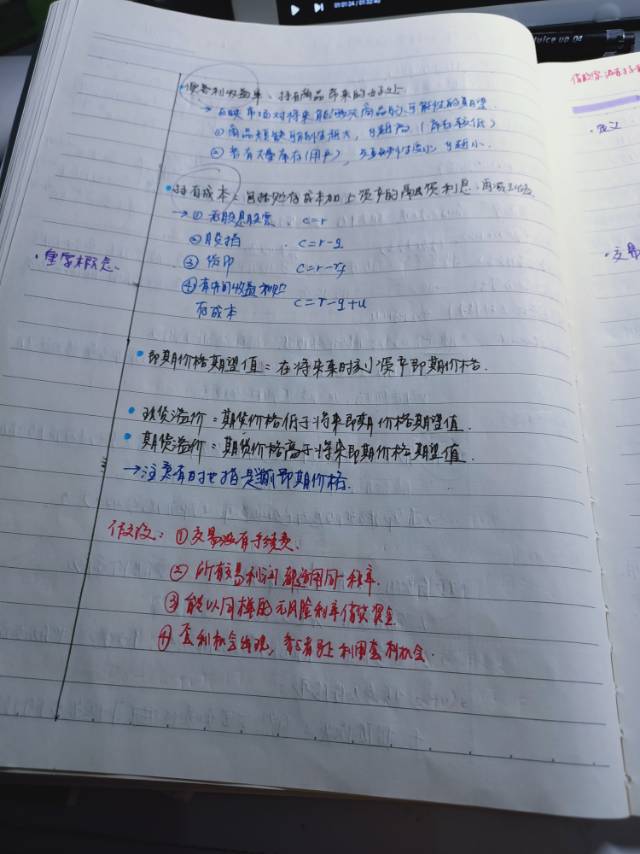 01:01:04 / 01:32:40
Juice up 04
·便利收益率：持有商品带来的好处
→反映市场对将来能购买商品的可能性的期望
①商品短缺可能性越大，y越高（库存较低）
②若有大量库存(用户)，y越小.
·持有成本：包括贮存成本加上资产的融资利息，再减去收益
→①无股息股票. c=r
②股指. c=r-q
③货币 c=r-rf
④有中间收益和贮
存成本 c=r-q+u
·重要概念.
·即期价格期望值：在将来某时刻资产即期价格.
·现货溢价：期货价格低于将来即期价格期望值.
·期货溢价：期货价格高于将来即期价格期望值.
→注意有时也指是当前即期价格.
假设：①交易没有手续费.
②所有交易利润都适用同一税率.
③能以同样的无风险利率借贷资金
④套利机会出现，参与者马上利用套利机会.
·定义
·交易